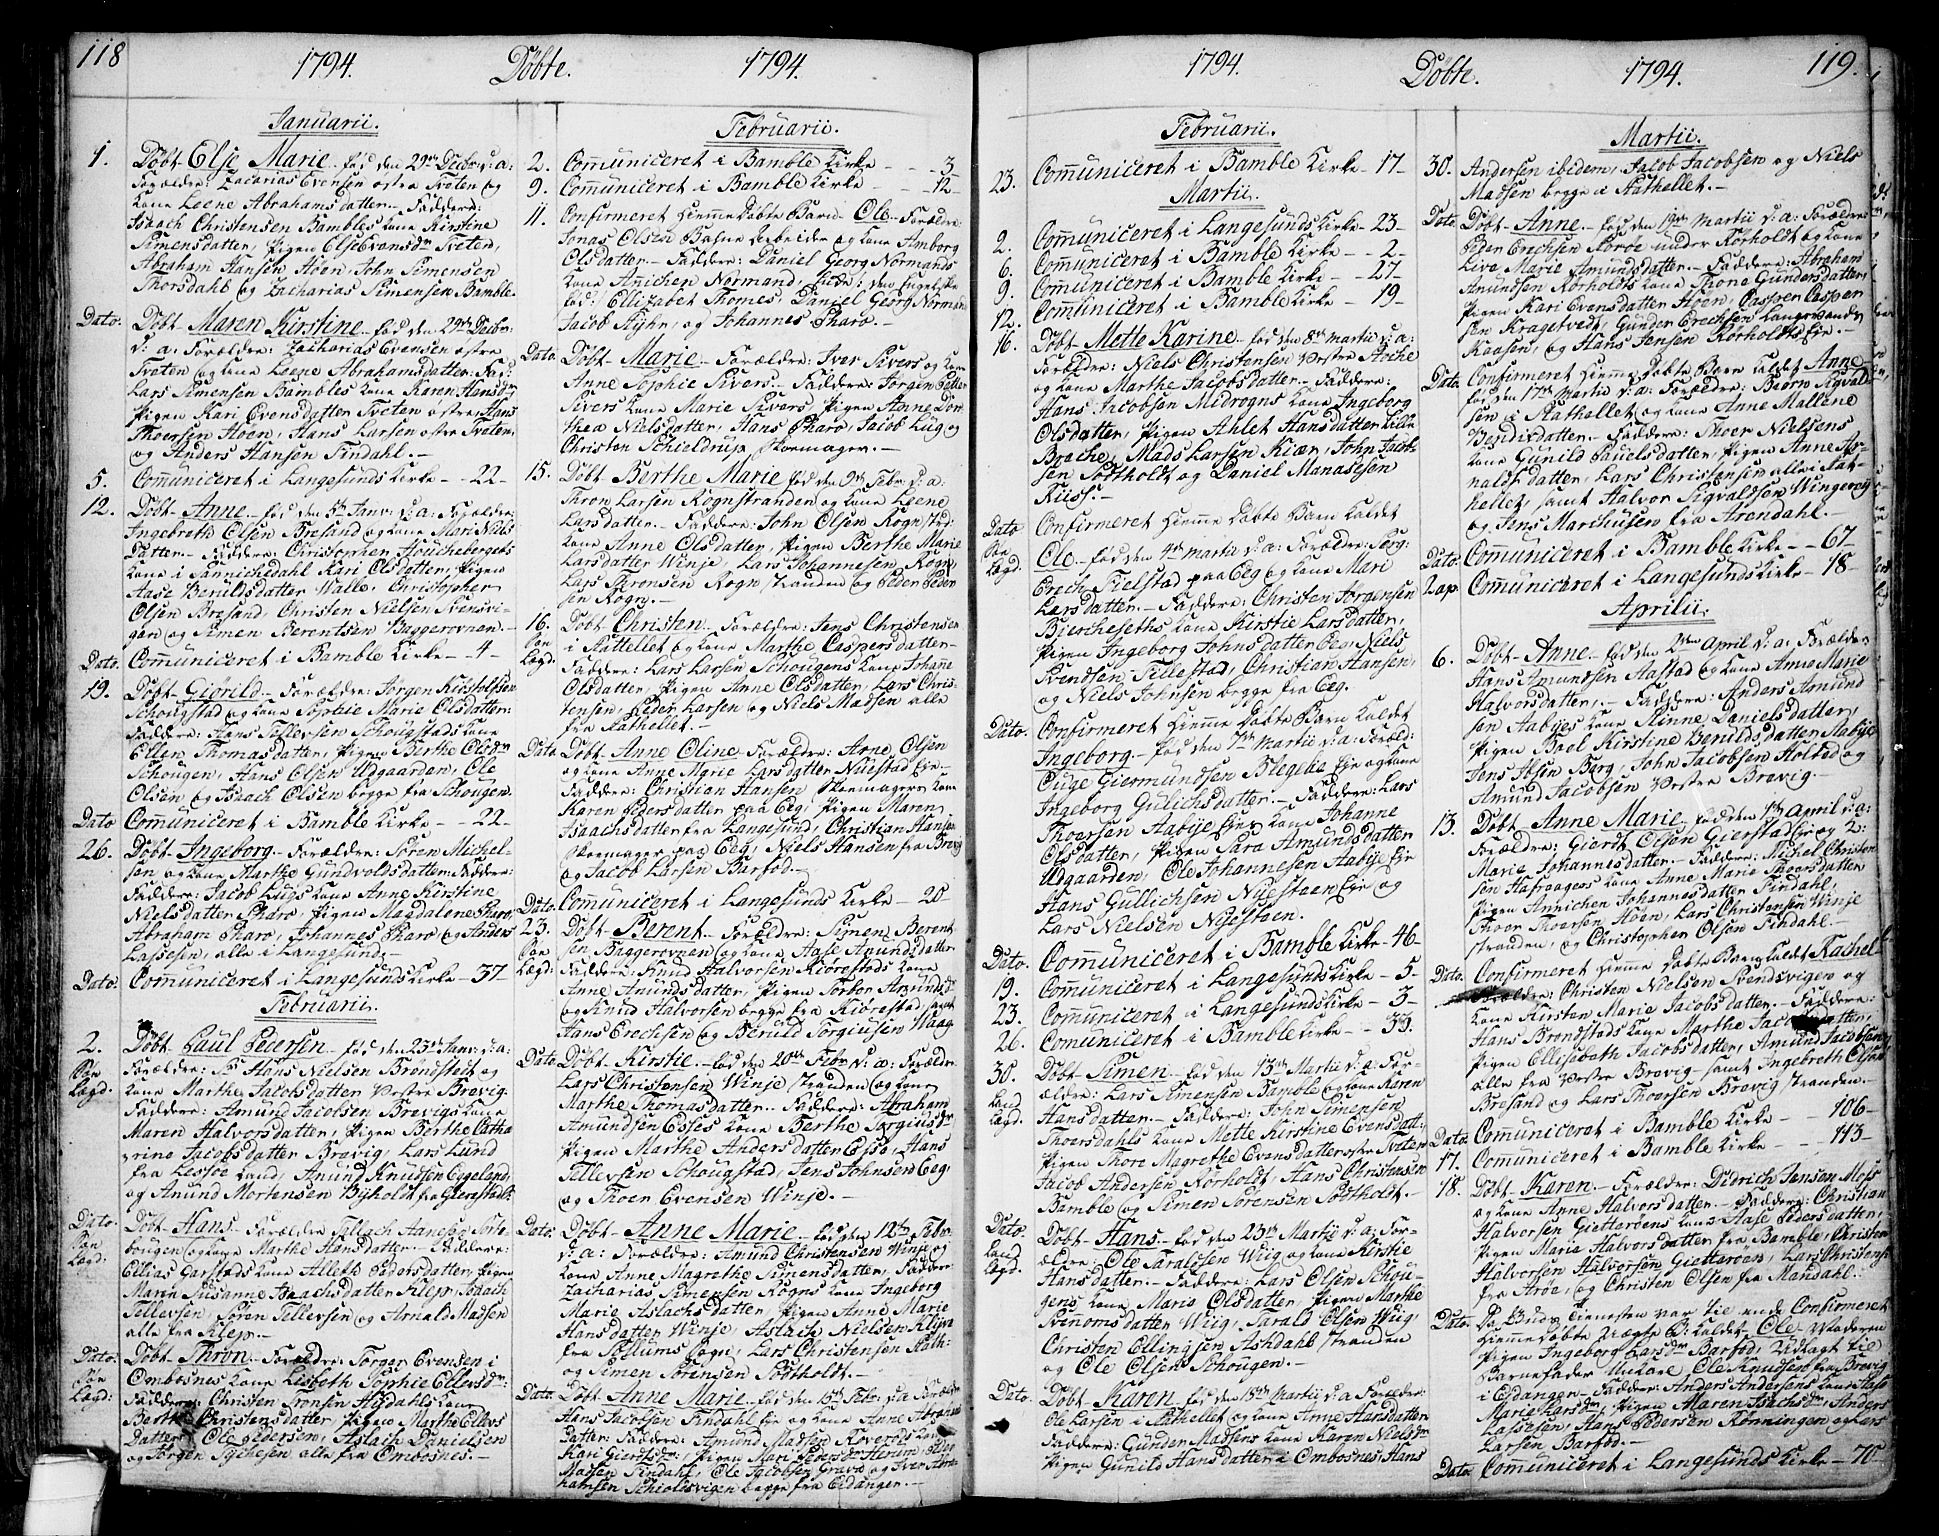 118
1794.
Döbte.
1794.
Januarii.
1. Döbt Else Marie. fød den 29de Decbr. d: a:
Forældre: Zacharias Evensen østre Tveten og
kone Leene Abrahamsdatter. Faddere:
Isaach Christensen Bambles kone Kirstine
Simensdatter, Pigen Else Evensdr Tveten,
Abraham Hansen Höen, John Simensen
Thorsdahl og Zacharias Simensen Bamble.
Dato. Döbt Maren Kirstine. fød den 29de Decbr:
d: a: Forældre: Zacharias Evensen østre
Tveten og kone Leene Abrahamsdatter: Fad:
Lars Simensen Bambles kone Karen Hansdr
Pigen Kari Evensdatter Tveten østre, Hans
Thoersen Höen, Hans Larsen østre Tveten,
og Anders Hansen Findahl.
5. Communiceret i Langesunds Kirke - 22 -
12. Döbt Anne. fød den 5te Janv. d: a: Forældre:
Ingebreth Olsen Bresand og kone Mari Niels
Datter. Faddere: Christopher
kone i Sannichedahl Kari Olsdatter, Pigen
Aase Benildsdatter Walle, Christopher
Olsen Bresand, Christen Nielsen Svensvi-
gen og Simen Berentsen Baggerovnen.
Dato. Communiceret i Bamble Kirke - 4 -
19. Döbt Giörild. Forældre: Jörgen
Schougstad og kone Marie Olsdatter.
Faddere: Hans Tellevsen Schougstads kone
Ellen Thomasdatter, Pigen Berthe Olsdr
Schougen, Hans Olsen Udgaarden, Ole
Olsen og Isaach Olsen begge fra Schougen.
Dato Communiceret i Bamble Kirke - 22 -
26. Döbt Ingeborg. Forældre: Sören Michel-
sen og kone Marthe Gundvoldsdatter. Faddere:
Faddere: Jacob Lugs kone Anne Kirstine
Nielsdatter Pharo, Pigen Magdalene Pharo,
Abraham Pharo, Johannes Pharo og Anders
Lassesen, alle i Langesund.
Dato. Communiceret i Langesunds Kirke - 37 -
Februarii.
2. Döbt Paul Pedersen. fød den 23de Janv: d: a:
Forældre: Hans Nielsen Brondsted og
kone Marthe Jacobsdatter Vestre Brevig.
Faddere: Amund Jacobsen Brevigs kone
Maren Halvorsdatter, Pigen Berthe Catha
rine Jacobsdatter Brevig, Lars Lund
fra Lessöe Land, Amund Knudsen Eggeland,
og Amund Mortensen Bijholdt fra Gierestad.
Dato. Döbt Hans. Forældre Tellach
og kone Marthe Hansdatter. Faddere:
Ellias Garstads kone Alleth Pedersdatter, Pigen
Maren Susanne Isaachsdatter Klep, Isaach
Tellevsen, Sören Tellevsen og Arnold Madsen
alle fra Klep.
Dato. Döbt Thron. Forældre: Torger Evensen i
Ombosnes kone Lisbeth Sophie Ellevsdr
Faddere: Christen Tronsen kone
Berthe Christensdatter, Pigen Marthe Ellevs
Datter, Ole Pedersen, Aslach Danielsen
og Jörgen alle fra Ombosnes.
Februarii.
2. Communiceret i Bamble Kirke - 3 -
9. Communiceret i Bamble Kirke - 12 -
11. Confirmeret Hiemme Døbte Barn Ole. Forældre
Jonas Olsen Arbeider og kone Amborg
Olsdatter. Faddere: Daniel Georg Normands
kone Anichen Normand, Lude: den Engelske
fød: Elizabet Thomes, Daniel Georg Normand
Jacob og Johannes Pharo.
Dato Döbt Marie. Forældre: Iver Sivers og kone
Anne Sophie Sivers. Faddere: Jörgen Petter
Sivers kone Marie Sivers, Pigen Anne Dor-
thea Nielsdatter, Hans Pharo, Jacob Lug og
Christen Schieldrup Skomager.
15. Döbt Berthe Marie fød den 9de Febr. d: a:
Thron Larsen Rognstranden og kone Leene
Larsdatter. Faddere: John Olsen Rogn
kone Anne Olsdatter, Pigen Berthe Marie
Larsdatter Winje, Lars Johannesen Rogn,
Lars Sörensen Rogn stranden og Peder Peder
sen Rogn.
16. Döbt Christen. Forældre: Jens Christensen
i Stattellet og kone Marthe Caspersdatter.
Faddere: Lars Larsen Schougens kone Johanne
Olsdatter, Pigen Anne Olsdatter, Lars Chris-
tensen, Peder Larsen og Niels Madsen alle
fra Stathellet.
Dato Döbt Anne Oline Forældre: Aone Olsen
og kone Anne Marie Larsdatter Niestad Eje.
Faddere: Christian Hansen Skomagers kone
Karen Pedersdatter paa Eeg, Pigen Maren
Isaachsdatter fra Langesund, Christian Hansen
Skomager paa Eeg, Niels Hansen fra Brevig
og Jacob Larsen Barfod.
Dato. Communiceret i Langesunds Kirke - 20 -
23. Döbt Berent. Forældre: Simen Berent
sen Baggerovnen og kone Aase Amundsdatter.
Faddere: Knud Halvorsen Kiörestads kone
Anne Amundsdatter, Pigen Torbor Amundsdr
og Knud Halvorsen begge fra Kiörestad, samt
Hans Erechsen og Beruld Torgiusen Waag.
Dato. Döbt Kirstie. fød den 20de Febr. d: a: Forældre:
Lars Christensen Winje stranden og kone
Marthe Thomasdatter. Faddere: Abraham
Amundsen Esses kone Berthe Torgiusdr
Pigen Marthe Andersdatter Esse, Hans
Tellevsen Schougstad, Jens Johnsen Eeg,
og Thoer Evensen Winje.
Dato. Döbt Anne Marie. fød den 12te Febr.
d: a: Forældre: Amund Christensen Winje og
kone Anne Magrethe Simensdatter, Faddere:
Zacharias Simensen Rogns kone Ingeborg
Marie Aslachsdatter, Pigen Anne Marie
Hansdatter Winje, Aslach Nielsen
fra Sollums Sogn, Lars Christensen Stath:
og Simen Sörensen Postholdt.
Dato. Döbt Anne Marie. fød den 15de Febr. d:a Forældre
Hans Jacobsen Findahl Eje og kone Anne Abrahams
Datter. Faddere: Amund Madsen kone
Kari Giertsdr. Pigen Mari Pedersdr Peder
Madsen Findahl, Ole Jacobsen og Iver Abra-
hamsen Schieldsvigen begge fra Eidanger.
1794.
Döbte.
1794.
119.
Februarii.
23. Communiceret i Bamble Kirke - 17 -
Martii.
2. Communiceret i Langesunds Kirke - 23 -
6. Communiceret i Bamble Kirke - 2 -
9. Communiceret i Bamble Kirke - 27 -
12. Communiceret i Bamble Kirke - 19 -
16. Döbt Mette Karine. fød den 8de Martii d: a:
Forældre: Niels Christensen Vestre Asche
og kone Marthe Jacobsdatter. Faddere:
Hans Jacobsen Midrogns kone Ingeborg
Olsdatter, Pigen Ahlet Hansdatter Lille
Brache, Mads Larsen Kiær, John Jacob-
sen Postholdt og Daniel Manasesen
Russ.
Dato Confirmeret Hiemme Døbte Barn kaldet
Ole. fød den 4de Martii d: a: Forældre: Serg:
Erech Fielstad paa Eeg og kone Mari
Larsdatter. Faddere: Christen Jörgensen
Biercheseths kone Kirstie Larsdatter,
Pigen Ingeborg Johnsdatter Eeg, Niels
Svendsen Tillestad, Christian Hansen,
og Niels Johnsen begge fra Eeg.
Dato. Confirmeret Hiemme Døbte Barn kaldet
Ingeborg. fød den 7de Martii d: a: Foræld:
Ouge Giermundsen Blegebæ Eje og kone
Ingeborg Gulichsdatter. Faddere: Lars
Thoersen Aabije Ejes kone Johanne
Olsdatter, Pigen Sara Amundsdatter
Udgaarden, Ole Johannesen Aabije Eje
Hans Gullichsen Niestaen Eje og
Lars Nielsen Niestaen.
Dato. Communiceret i Bamble Kirke - 46 -
19. Communiceret i Langesunds Kirke - 5 -
23. Communiceret i Langesunds Kirke - 3 -
26. Communiceret i Bamble Kirke - 33.
30. Döbt Simen. fød den 13de Martii d: a: For-
ældre: Lars Simensen Bamble og kone Karen
Hansdatter. Faddere: John Simensen
Thorsdahls kone Mette Kirstine Evensdatt:
Pigen Thore Magrethe Evensdatter østre Tveten
Jacob Andersen Rörholdt, Hans Christensen
Bamble og Simen Sörensen Postholdt.
Dato. Döbt Hans. fød den 23de Martii d: a: For-
ældre: Ole Taraldsen Wiig og kone Kirstie
Hansdatter. Faddere: Lars Olsen Schou-
gens kone Maria Olsdatter, Pigen Marthe
Svinomsdatter Wiig, Tarald Olsen Wiig,
Christen Ellingsen Aschdahl stranden
og Ole Olsen Schougen.
Dato. Döbt Karen. fød den 18de Martii d: a Forældre:
Ole Larsen i Stathellet og kone Anne Hansdatter
Faddere: Gunder Madsens kone Karen Nielsdr
Pigen Gunild Hansdatter i Ombosnes, Hans
Martii.
30. Andersen ibidem, Jacob Jacobsen og Niels
Madsen begge i Stathellet.
Dato. Döbt Anne. fød den 19de Martii d: a: Forældre
Peder Erechsen Aaröe under Rörholdt og kone
Live Marie Amundsdatter. Faddere: Abraham
Amundsen Rörholdts kone Thone Gundersdatter,
Pigen Kari Evensdatter Höen, Casper Casper
sen Kragetvedt, Gunder Erechsen Langevands
Kaasen, og Hans Jensen Rörholdts Eje.
Dato. Confirmeret Hiemme Døbte Barn kaldet Anne
fød den 17de Martii d: a: Forældre: Beörn Sigvald
sen i Stathellet og kone Anne Mallene
Bendixdatter. Faddere: Thoer Nielsens
kone Gunild Pauelsdatter, Pigen Anne
naldsdatter, Lars Christensen alle i Stat-
hellet, samt Halvor Sigvaldsen Wingereij
og Jens Marchusen fra Arendahl.
Dato. Communiceret i Bamble Kirke - 67 -
2ap. Communiceret i Langesunds Kirke - 18 -
Aprilii.
6. Döbt Anne. fød den 2den April d: a: Forældre
Hans Amundsen Aastad og kone Anne Marie
Halvorsdatter. Faddere: Anders Amund
sen Aabyes kone Danielsdatter,
Pigen Boel Kirstine Benildsdatter Aabije,
Jens Ilsen Berg, John Jacobsen Holsted og
Amund Jacobsen Vestre Brevig.
13. Döbt Anne Marie. fød den 7de April d: a:
Forældre: Gierdt Olsen Gierstads Eje og 2:
Marie Johannesdatter. Faddere: Michel Christen
sen Hafsagers kone Anne Marie Thoersdatter,
Pigen Annichen Johannesdatter Findahl,
Thoer Thoersen Höen, Lars Christensen Winje
stranden, og Christopher Olsen Findahl.
Dato. Confirmeret Hiemme Døbte Barn kaldet Rachel
Forældre: Christen Nielsen Svendsvigen og
kone Kirsten Marie Jacobsdatter. Faddere:
Hans Brondsteds kone Marthe Jacobsdatter,
Pigen Ellisebeth Jacobsdatter, Amund Jacobsen
alle fra Vestre Brevig, samt Ingebreth Olsen
Bresand og Lars Thoersen Brevig stranden.
Dato. Communiceret i Bamble Kirke - 106 -
17. Communiceret i Bamble Kirke - 113 -
18. Döbt Karen. Forældre: Didrich Jensen Moss
og kone Anne Halvorsdatter. Faddere: Christian
Halvorsen Gietteröens kone Aase Pedersdatter,
Pigen Maria Halvorsdatter fra Bamble, Christen
Halvorsen Halvorsen Gietteröen, Lars Christens:
fra Aröe, og Christen Olsen fra Mansdahl.
Dato. Da Guds Tienesten var til ende Confirmeret
Hiemmedøbte Uægte B: kaldet Ole. Moderen
Pigen Ingeborg Larsdr Barfod, Udlagt til
Barnefader Unkarl Ole Knudsen fra Brevig
i Eidanger. Fadder: Anders Andersens kone
Marie Larsdr, Pigen Maren Isachsdr, Anders
Lassesen, Hans Pedersen Rönningen og Lars
Larsen Barfod.
Dato Communiceret i Langesunds Kirke - 70 -